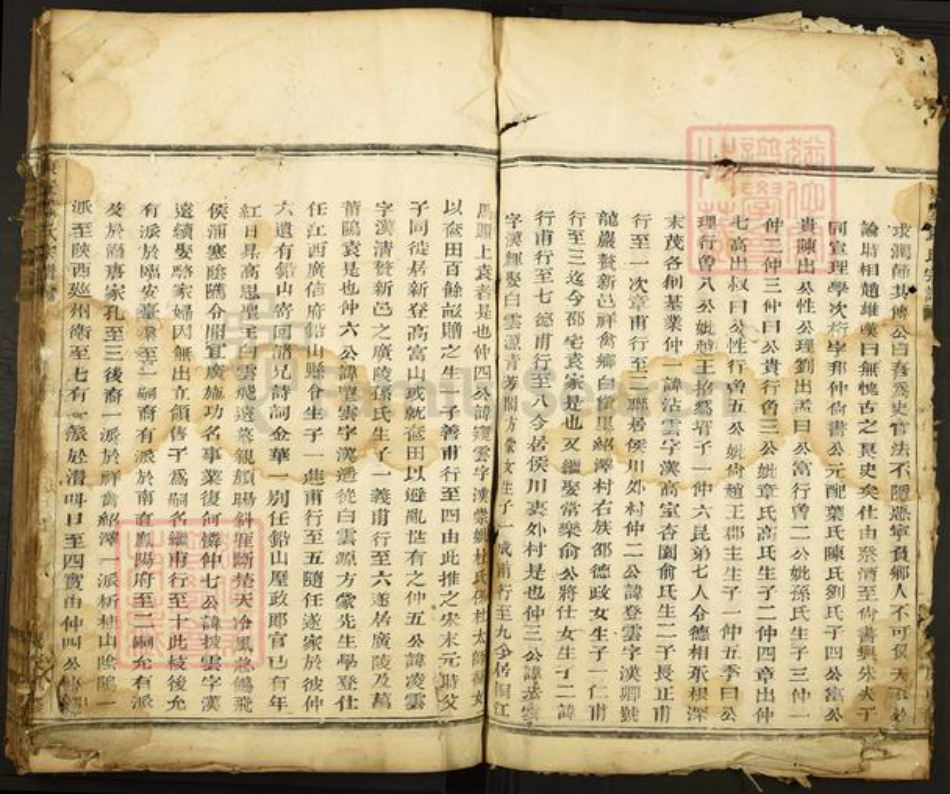 求潤飾其傳公曰吾爲史官法不隱惡寧負鄉人不可
論時相趙雄嘆曰無愧古之良史矣仕由蔡酒至尙書與朱夫子
同宣理學次桁字邦仲尙書公元配葉氏陳氏劉氏子四公富公
貴陳出公性公理劉出孟曰公富行曾二公妣孫氏生子三仲一
仲二仲三仲曰公貴行曾三公妣章氏高氏生子二仲四章出仲
七高出叔曰公性行曾五公妣尙趙王郡主生子一仲五季曰公
理行曾八公妣趙王招爲壻子一仲六昆弟七人令德相承根深
末茂各創基業仲一諱沾雲字漢高室杏園俞氏生二子長正甫
行至一次章甫行至二聯居侯川外村仲二公諱登雲字漢卿號
龍巖贅新邑祥禽鄉白 里紹澤村右族邵德政女生子一仁甫
行至三迄今邵宅袁家是也又繼娶常樂俞公將仕女生子二諱
行甫行至七德甫行至八今居侯川裏外村是也仲三公諱 雲
字漢輝娶白雲源青芳閣方蒙女生子一成甫行至九今居桐江
馬頭上袁者是也仲四公諱 雲字漢崇 杜氏係杜太師 女
以奩田百餘畝贈之生一子善甫行至四由此推之宋末元時父
子同徙居新登高富山或就奩田以避亂世有之仲五公諱凌雲
字漢清贅新邑之廣陵孫氏生子一義甫行至六遂居廣陵及萬
莆陽袁是也仲六公諱望雲字漢透從白雲源方蒙先生學登仕
任江西廣信府鉛山縣令生子一進甫行至五隨任遂家於彼仲
六遺有鉛山寄回諸兄詩詞金華一別任鉛山屢政郎官已有年
紅日昇高思聖主白雲飛遠慕親顏賜斜 斷楚天冷風急鴻飛
侯浦寒陰隲分開宜廣施功名事業復何憐仲七公諱披雲字漢
遠續娶駱家婦因無出立領售子爲嗣名繼甫行至十此枝後允
有派於臨安臺 至一嗣裔有派於南直鳳陽府至二嗣允有派
於 唐家孔至三後裔一派於祥禽紹澤一派析 山陰 一
派至陝西 州衛至七有一派於 口至四實由仲四公